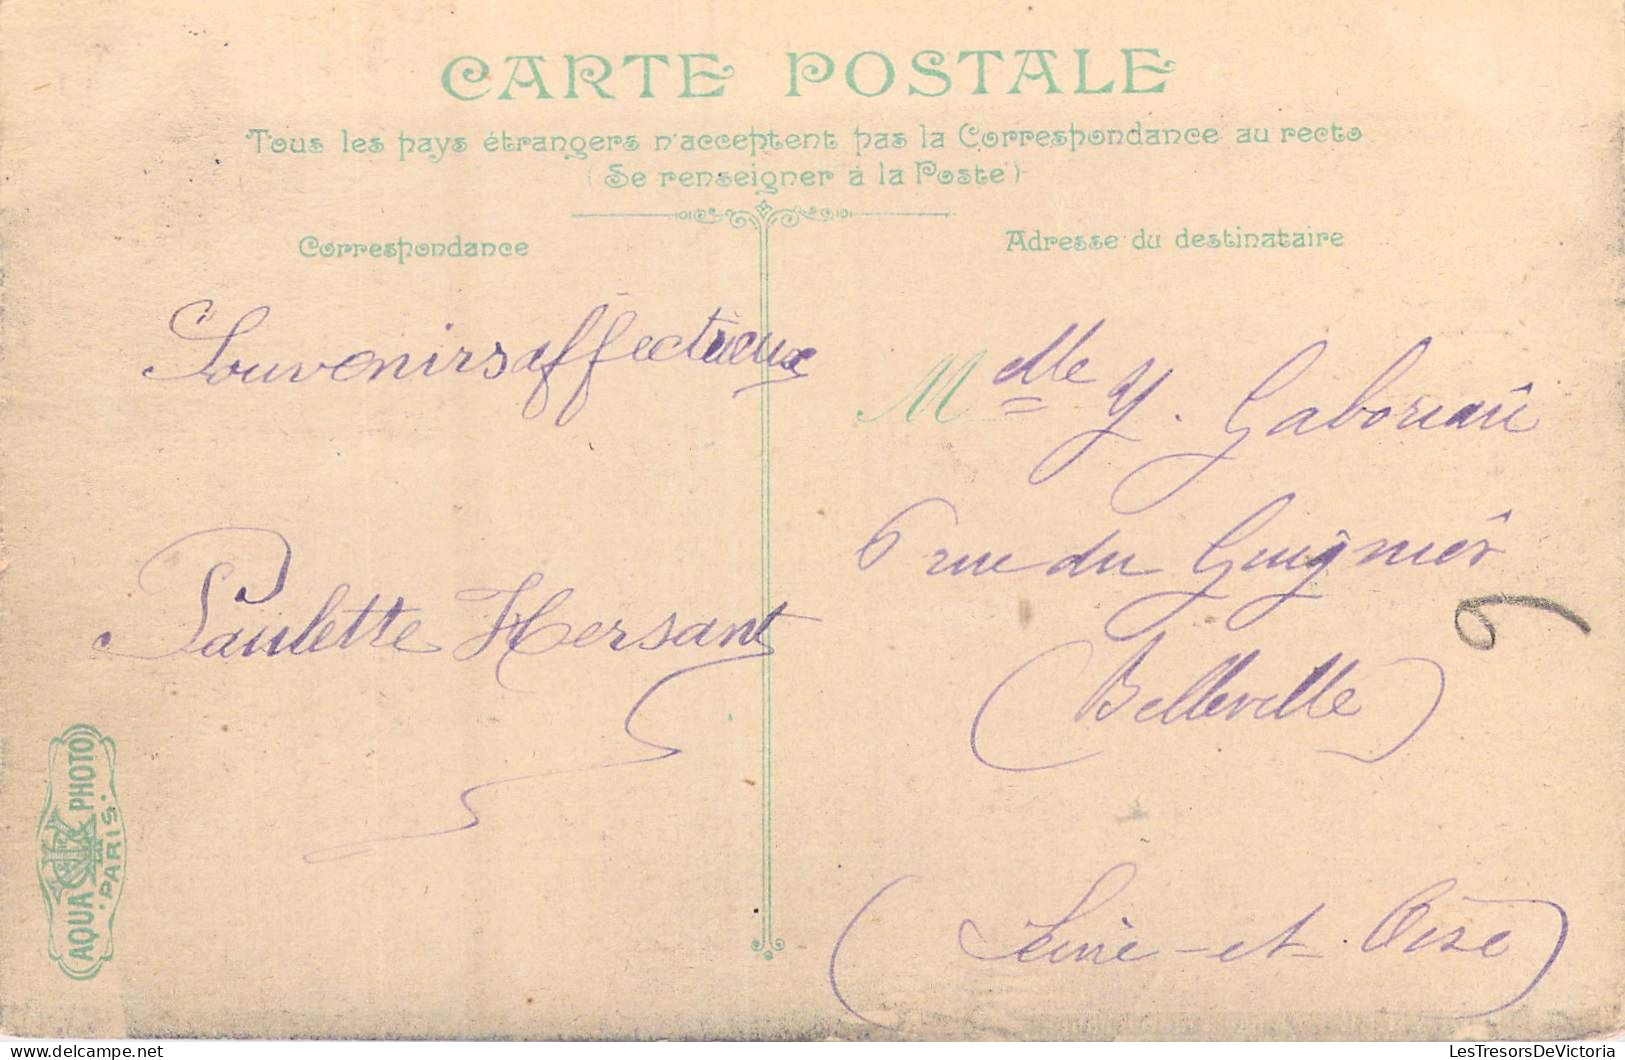 CARTE POSTALE
Tous les pays étrangers n'acceptent pas la Correspondance au recto
(Se renseigner à la Poste)
Correspondance
Souvenirs affectueux
Paulette Hersant
Adresse du destinataire
Melle Y. Gaboriau
6 rue du Guignier
(Belleville)
(Seine-et-Oise)
9
AQUA PHOTO
PARIS
LesTresorsDeVictoria